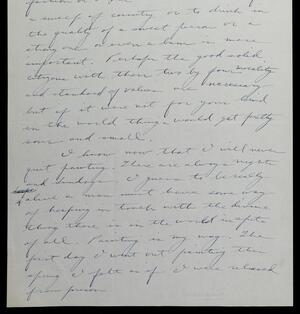 a sweep of country or to drink in
the quality of a sweet person or a
strong one or even a bum is more
important. Perhaps the good solid
citizens with their two by four morality
and standard of values are necessary
but if it were not for your kind
in the world things would get pretty
sour and small.
I know now that I will never
quit painting. There are along nights
and Sundays. I guess to be really
alive a man must have some way
of keeping in touch with the divine
thing there is in the world in spite
of all. Painting is my way. The
first day I went out painting this
spring I felt as if I were released
from prison